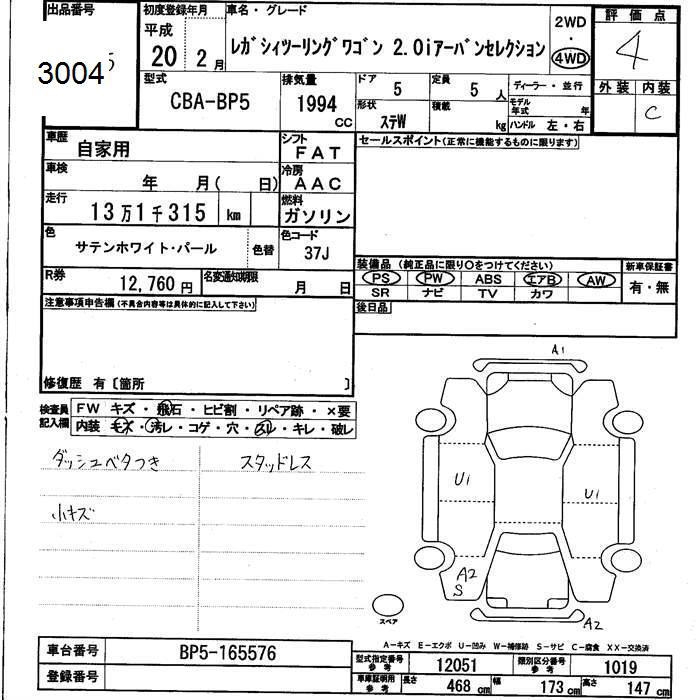 出品番号
30045
初度登録年月
平成
20年2月
車名・グレード
レガシィツーリングワゴン 2.0iアーバンセレクション
2WD
・
4WD
評価点
4
外装 内装
C
型式
CBA-BP5
排気量
1994
CC
ドア
5
定員
5人
ディーラー・並行
形状
ステW
積載
kg
モデル年式 年
ハンドル 左・右
車歴
自家用
シフト
FAT
セールスポイント(正常に機能するものに限ります)
車検
年 月( 日)
冷房
AAC
走行
13万1千315 km
燃料
ガソリン
色
サテンホワイト・パール
色替
色コード
37J
装備品(純正品に限り○をつけてください)
新車保証書
PS PW ABS エアB AW
有・無
SR ナビ TV カワ
R券
12,760円
名変通知期限
月 日
後日品
注意事項申告欄(不具合内容等は具体的に記入して下さい)
修復歴 有〔箇所 〕
検査員記入欄
FW キズ・飛石・ヒビ割・リペア跡・×要
内装 キズ・汚レ・コゲ・穴・スレ・キレ・破レ
ダッシュベタつき
スタッドレス
小キズ
A1
U1
U1
A2
S
A2
スペア
A-キズ E-エクボ U-凹み W-補修跡 S-サビ C-腐食 XX-交換済
車台番号
BP5-165576
登録番号
型式指定番号参考
12051
類別区分番号参考
1019
車庫証明用参考
長さ
468cm
幅
173cm
高さ
147cm